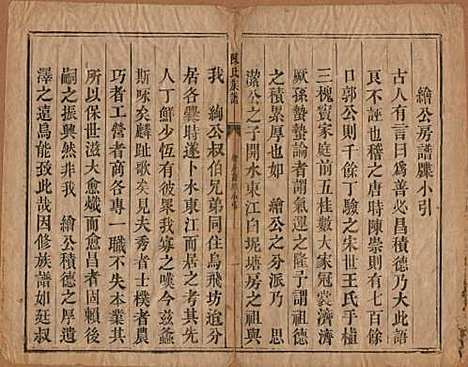 繪公房譜牒小引
古人有言曰為善必昌積德乃大此語
良不誣也稽之唐時陳崇則有七百餘
口郭公則千餘丁驗之宋世王氏手植
三槐竇家庭前五桂數大家冠裳濟濟
厥孫蟄蟄論者謂氣運之隆予謂祖德
之積累厚也繪公之分派乃 思
潔公之子開水東江白坭塘房之祖與
陳氏族譜
我 絢公叔伯兄弟同住烏飛坊
居各爨時遂卜水東江而居之其先
人丁鮮少恆有彼眾我寡之嘆今茲螽
斯咏矣麟趾歌矣見夫秀者士樸者農
巧者工營者商各專一職不失本業其
所以保世滋大愈熾而愈昌者固賴後
嗣之振興然非我 繪公積德之厚遺
澤之遠烏能致此哉因修族譜如廷叔